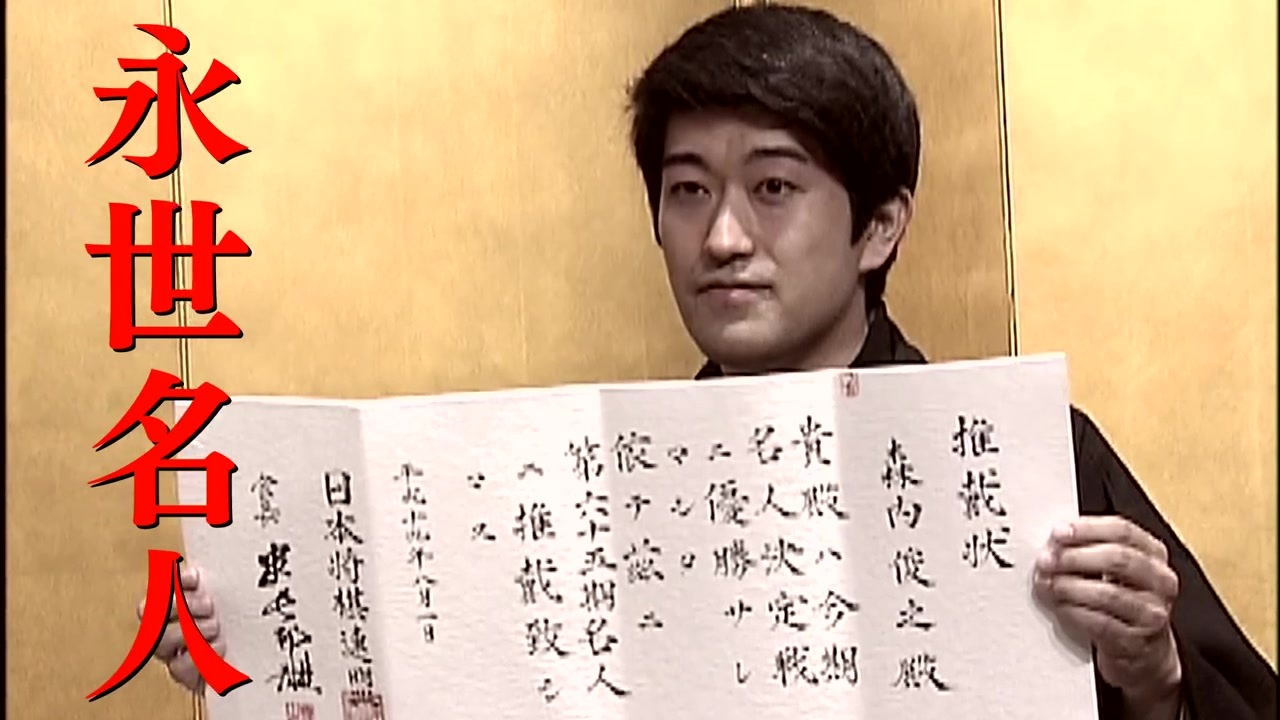 永世名人
推戴状
森内俊之殿
貴殿ハ今期
名人決定戦
ニ優勝サレ
マシタ
依テ茲ニ
第六十五期名人
ニ推戴致シ
マス
平成十九年八月一日
日本将棋連盟
会長